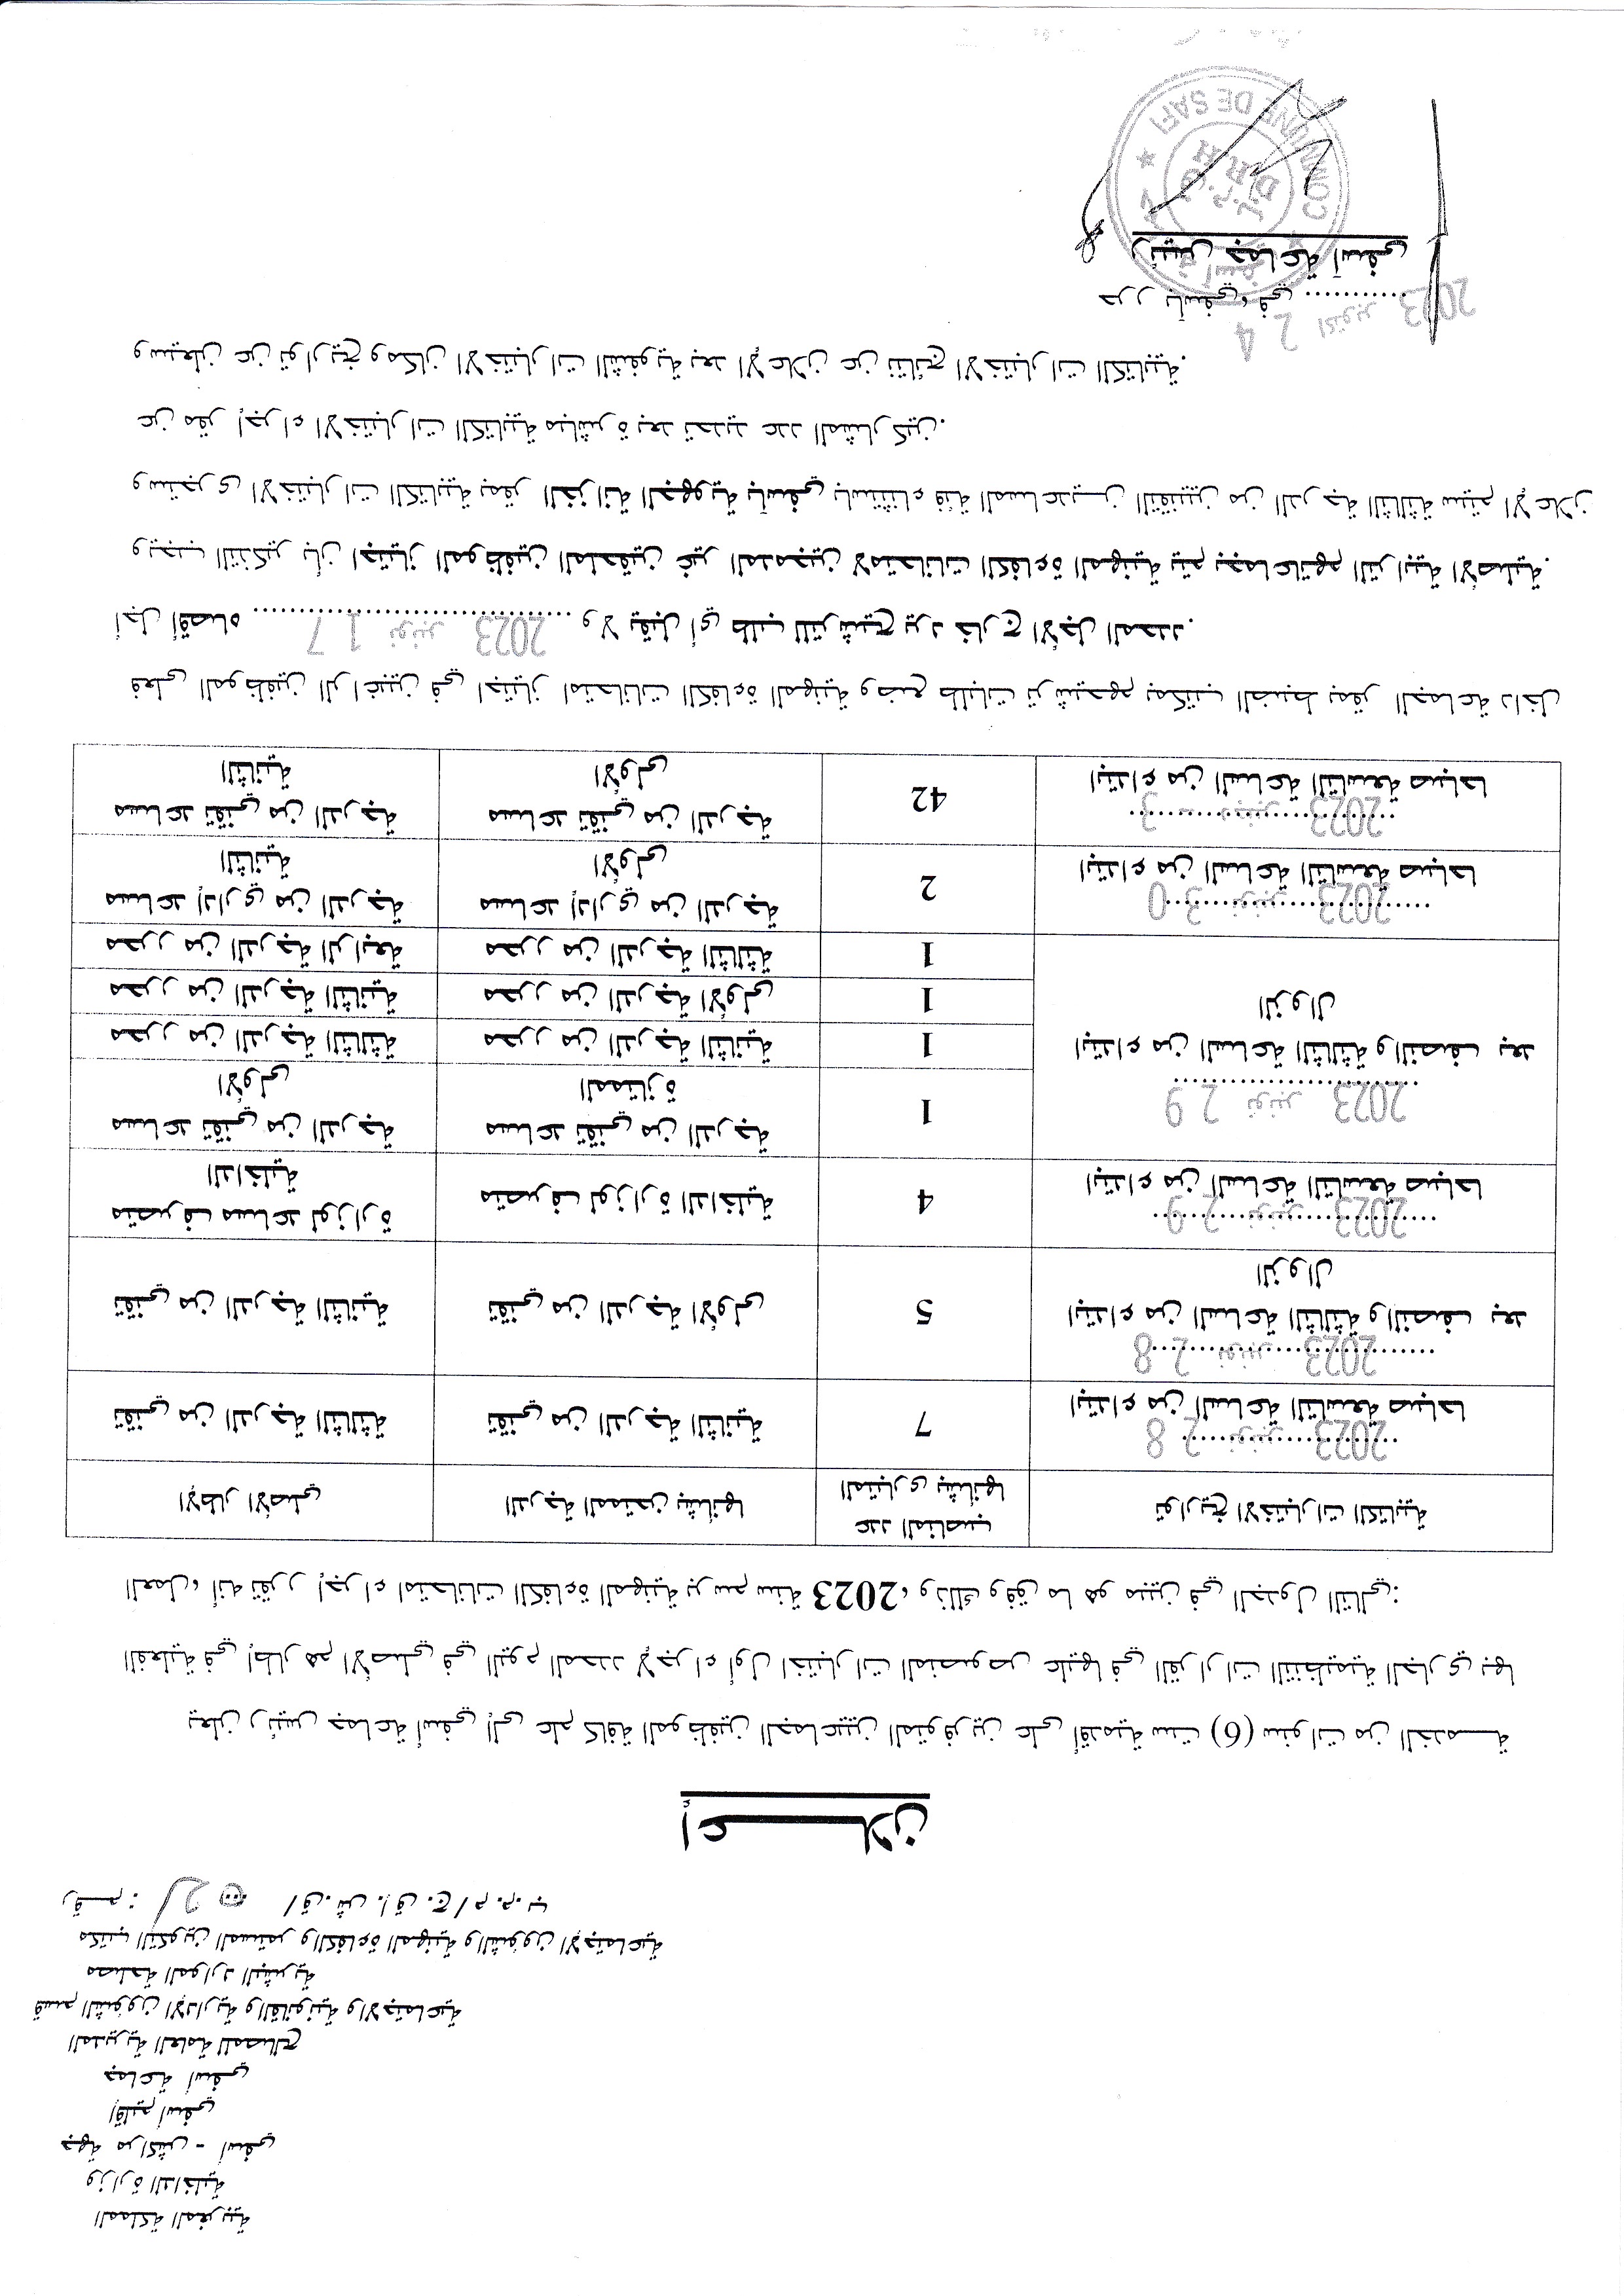 المملكة المغربية
وزارة الداخلية
جهة مراكش - أسفي
إقليم أسفي
جماعة أسفي
المديرية العامة للمصالح
قسم الشؤون الإدارية والقانونية والاجتماعية
مصلحة الموارد البشرية
مكتب التكوين المستمر والكفاءة المهنية والشؤون الإجتماعية
رقـــم : /ق. ش .إ ق .ج / م .م. ب
إعـــــــــلان
يعلن رئيس جماعة أسفي إلى علم كافة الموظفين الجماعيين المتوفرين على أقدمية ست (6) سنوات من الخدمـــة
الفعلية في إطارهم الأصلي في اليوم المحدد لإجراء أول اختبارات المنصوص عليها في القرارات التنظيمية الجاري بها
العمل، أنه تقرر إجراء امتحانات الكفاءة المهنية برسم سنة 2023، وذلك وفق ما هو مبين في الجدول التالي:
الإطار الأصلي الدرجة الممتحن بشأنها عدد المناصب المتبارى بشأنها تواريخ الاختبارات الكتابية
تقني من الدرجة الثالثة تقني من الدرجة الثانية 7 28 نونبر 2023 ابتداء من الساعة التاسعة صباحا
تقني من الدرجة الثانية تقني من الدرجة الأولى 5 28 نونبر 2023 ابتداء من الساعة الثالثة والنصف بعد الزوال
متصرف مساعد لوزارة الداخلية متصرف لوزارة الداخلية 4 29 نونبر 2023 ابتداء من الساعة التاسعة صباحا
مساعد تقني من الدرجة الأولى مساعد تقني من الدرجة الممتازة 1 29 نونبر 2023 ابتداء من الساعة الثالثة والنصف بعد الزوال
محرر من الدرجة الثالثة محرر من الدرجة الثانية 1
محرر من الدرجة الثانية محرر من الدرجة الأولى 1
محرر من الدرجة الرابعة محرر من الدرجة الثالثة 1
مساعد إداري من الدرجة الثانية مساعد إداري من الدرجة الأولى 2 30 نونبر 2023 ابتداء من الساعة التاسعة صباحا
مساعد تقني من الدرجة الثانية مساعد تقني من الدرجة الأولى 42 3 دجنبر 2023 ابتداء من الساعة التاسعة صباحا
فعلى الموظفين الراغبين في اجتياز امتحانات الكفاءة المهنية وضع طلبات ترشيحهم بمكتب الضبط بمقر الجماعة داخل
أجل أقصاه 17 نونبر 2023 ولا يقبل أي طلب للترشيح يرد خارج الأجل المحدد.
ويجب التذكير بأن اجتياز الموظفين الملحقين غير المدمجين لامتحانات الكفاءة المهنية يتم بجماعاتهم الترابية الأصلية.
وستجرى الاختبارات الكتابية بمقر الخزانة الجهوية بآسفي باستثناء فئة المساعديـــن التقنيين من الدرجة الثالثة سيتم الإعلان
عن مقر إجراء الاختبارات الكتابية مباشرة بعد تحديد عدد المشاركين.
وسيعلن عن تواريخ ومكان الاختبارات الشفوية بعد الإعلان عن نتائج الاختبارات الكتابية.
حرر بآسفي، في 24 اكتوبر 2023
رئيس جماعة آسفي
D.R.H
COMMUNE DE SAFI